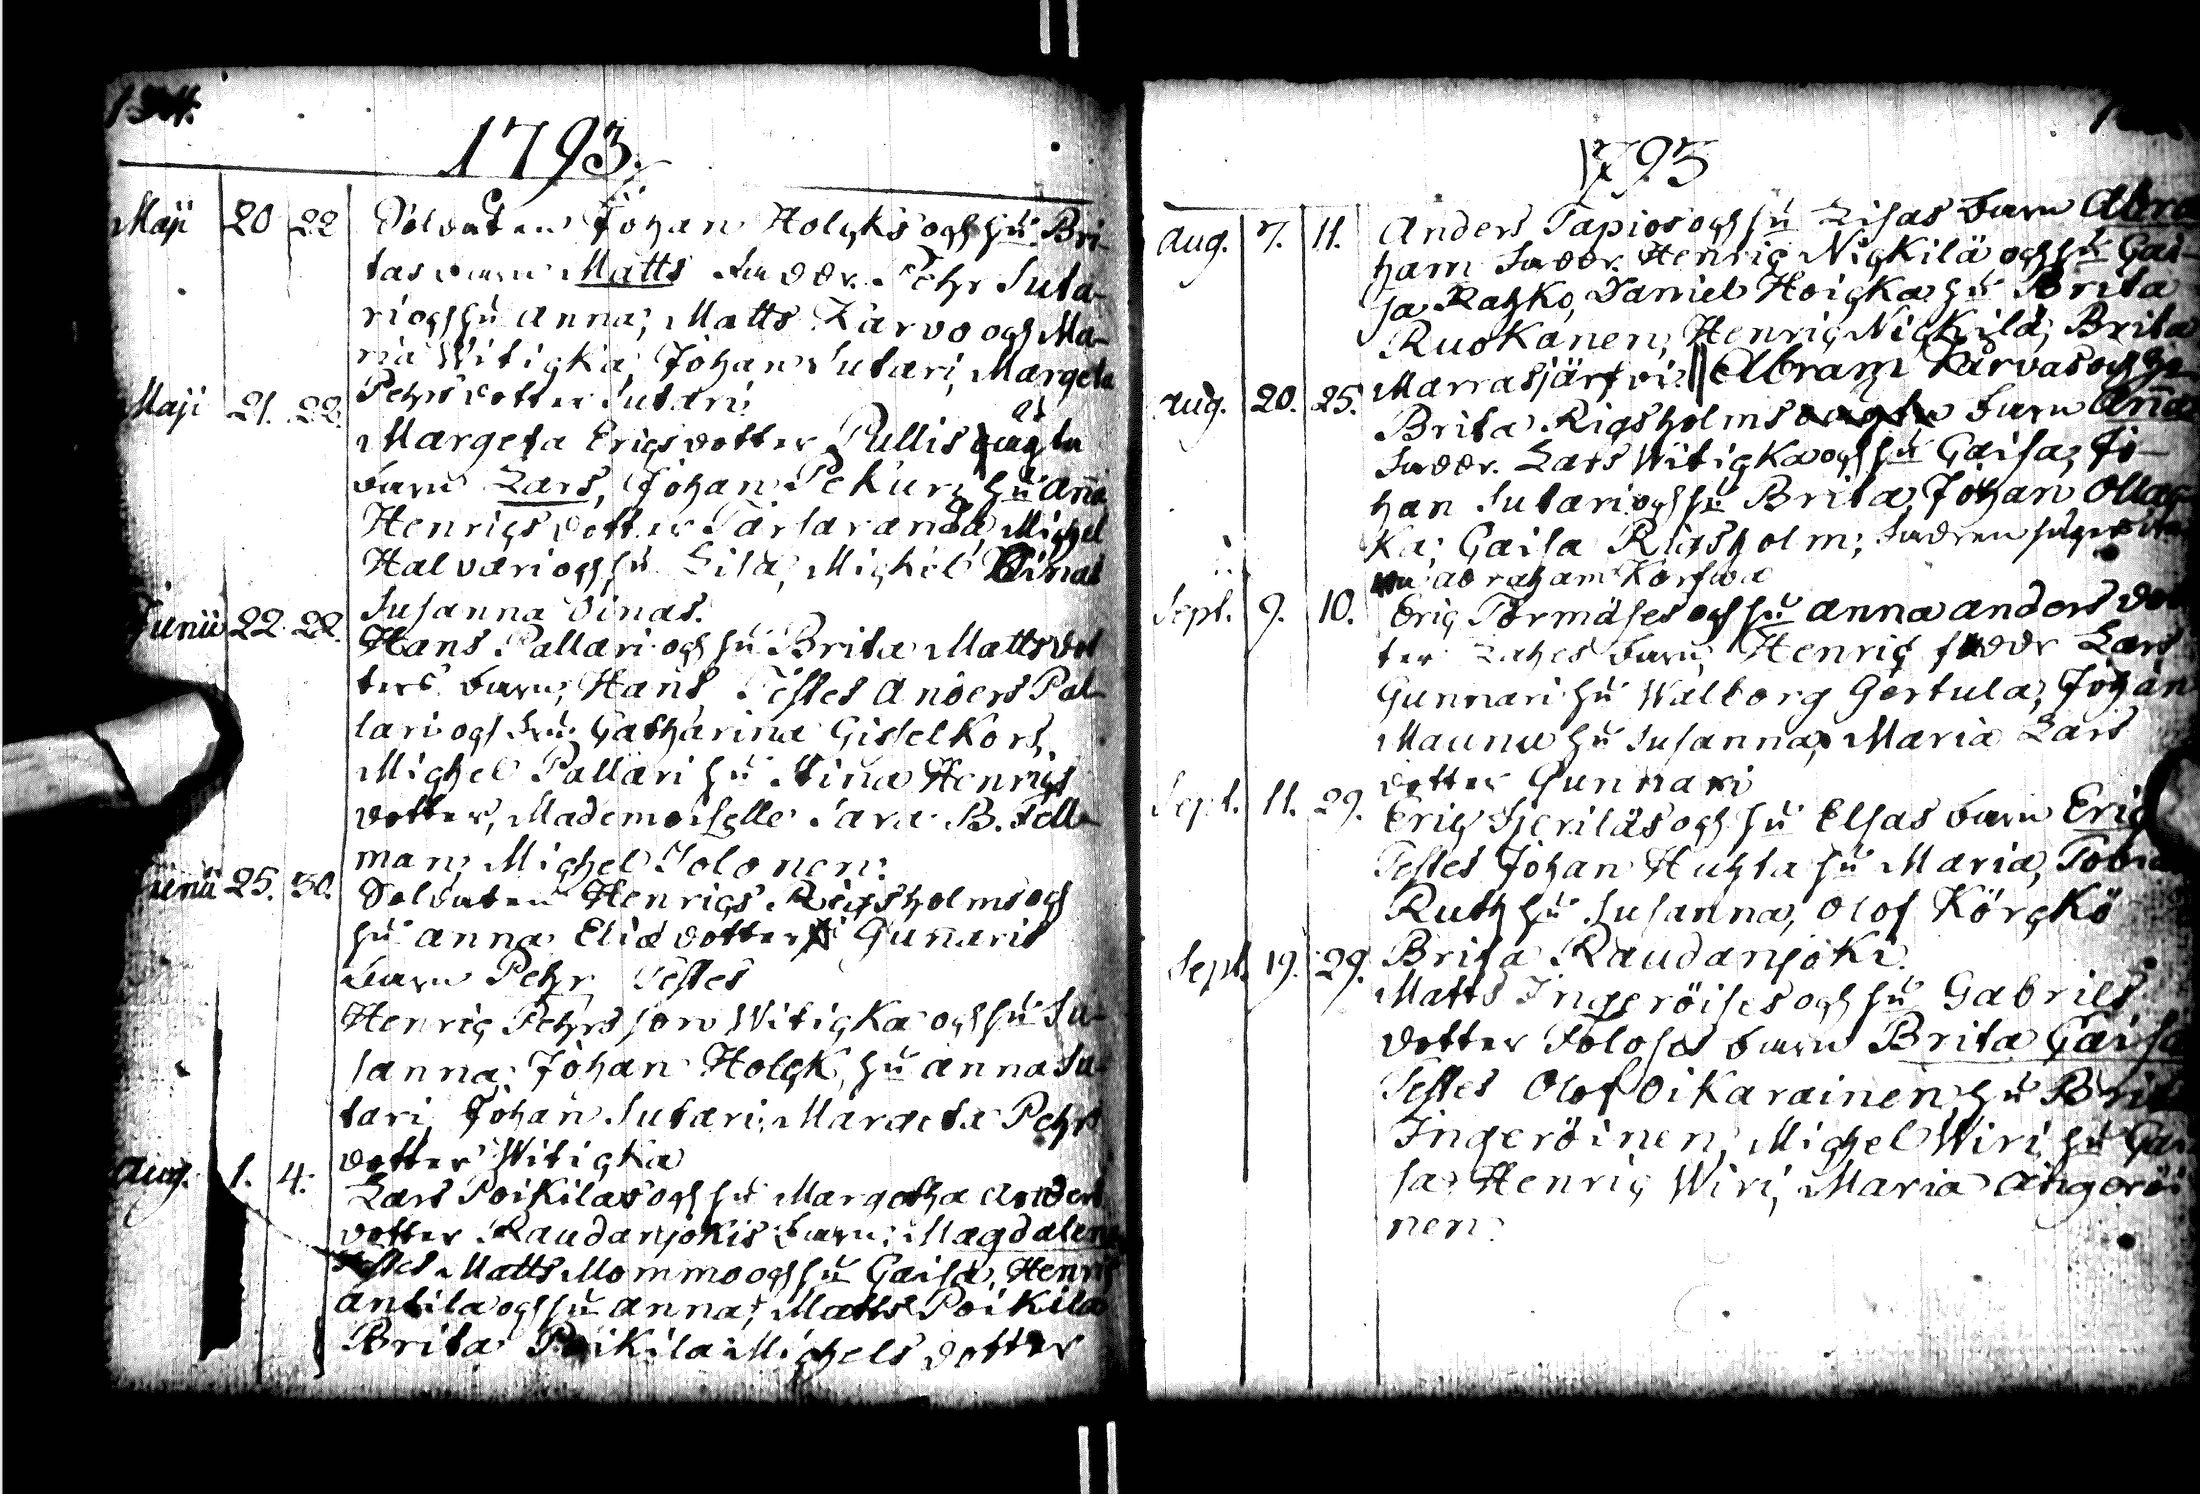 1793.
Maji 20 22 Soldaten Johan Holcks och hu Bri-
tas barn Matts faddr. Pehr Suta-
ri och hu Anna, Matts Karvo och Ma-
ria Witicka, Johan Sutari, Margeta
Pehrs dotter Sutari
Maji 21. 22. Margeta Erics dotter Pullis
barn Lars, Johan Pekuri hu Anna
Henrics dotter Michel
Halvari och hu Lisa, Michel Oinas
Susanna Oinas.
Junii 22 22. Hans Pallari och hu Brita Matts dot
ters barn, Hans Testes Anders Pal-
lari och hu Catharina Gisselkors,
Michel Pallari hu Stina Henrics
dotter, Mademoiselle Sara B. Fell-
man, Michel Tolonen.
Junii 25. 30. Soldaten Henrics Ricsholms och
hu Anna Elia dotter Gunnaris
barn Pehr Testes
Henric Pehrs son Witicka och hu Su-
sanna, Johan Holck, hu Anna Su-
tari, Johan Sutari, Margeta Pehrs
dotter Witicka
Aug. 1. 4. Lars Poikilas och hu Margetha Anders
dotter Raudanjokis barn, Magdalena
Testes Matts Mommo och hu Caisa, Henric
Antila och hu Anna, Matts Poikila
Brita Poikila Michels dotter
1793
Aug. 7. 11. Anders Tapios och hu Lisas barn Abra
ham faddr. Henric Nickilä och hu Cai-
sa Ratzko, Daniel Hoicka hu Brita
Ruokanen, Henric Nickilä, Brita
Marrasjärfvi
Aug. 20. 25. Abram Karvas och hu
Brita Ricsholms barn Anna
faddr. Lars Witicka och hu Caisa, Jo-
han Sutari och hu Brita, Johan Ollac-
ka, Caisa Ricsholm,
Abraham Korfwa
Sept. 9. 10. Eric Tormäses och hu Anna Anders dot
ter barn, Henric faddr Lars
Gunnari hu Walborg Gertula, Johan
Maunu hu Susanna, Maria Lars
dotter Gunnari
Sept. 11. 29. Eric och hu Elsas barn Eric
Testes Johan Huhta hu Maria, Tobias
Ruth hu Susanna, Olof Körckö
Brita Raudanjoki.
Sept. 19. 29. Matts Ingeröises och hu Gabriels
dotter Toloses barn Brita Caisa
Testes Olof Oikarainen hu Brita
Ingeröinen, Michel Wiri hu Cai
sa, Henric Wiri, Maria Aingeröi
nen.